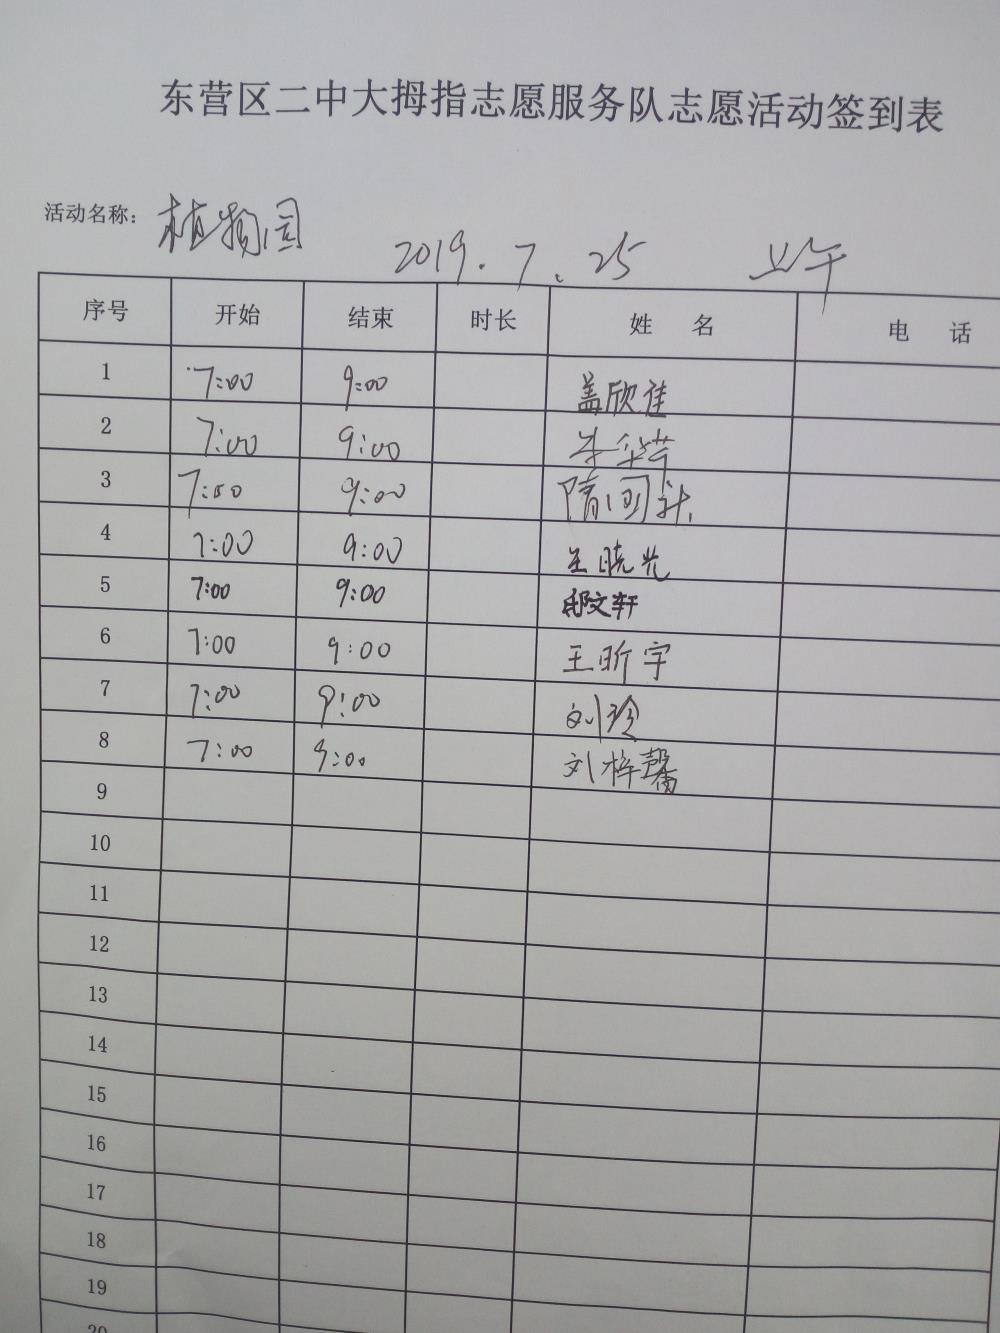 东营区二中大拇指志愿服务队志愿活动签到表
活动名称：植物园 2019.7.25 上午
序号 开始 结束 时长 姓名 电话
1 7:00 9:00 盖欣佳
2 7:00 9:00
3 7:00 9:00 隋
4 7:00 9:00 王晓光
5 7:00 9:00 邸文轩
6 7:00 9:00 王昕宇
7 7:00 9:00 刘珍
8 7:00 9:00 刘梓馨
9
10
11
12
13
14
15
16
17
18
19
20